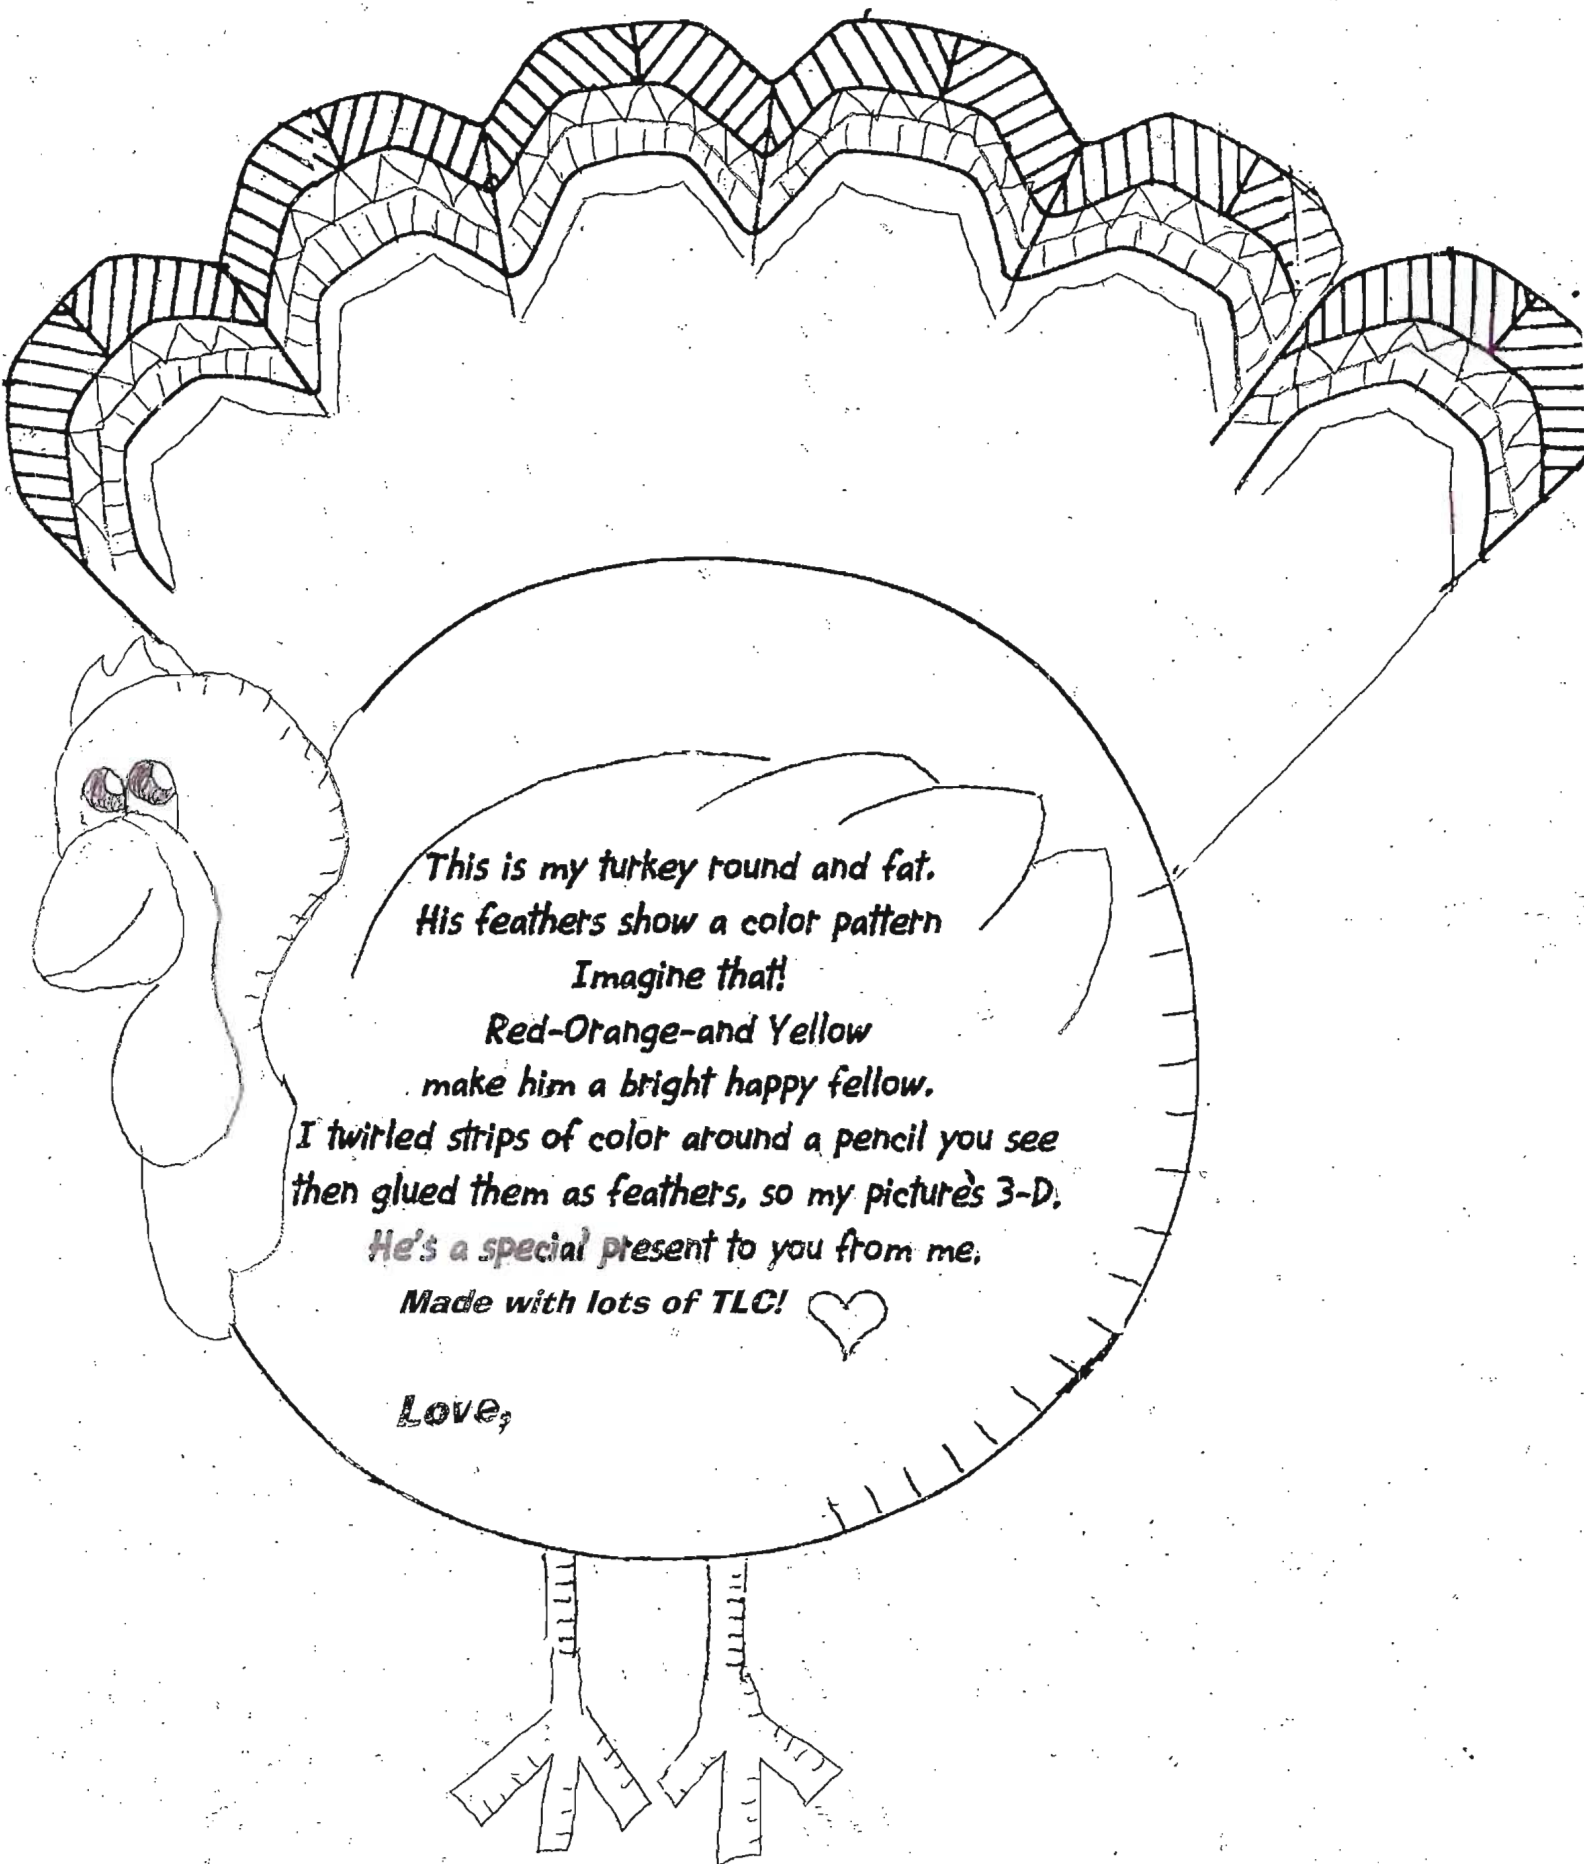 This is my turkey round and fat.
His feathers show a color pattern
Imagine that!
Red-Orange-and Yellow
make him a bright happy fellow.
I twirled strips of color around a pencil you see
then glued them as feathers, so my picture's 3-D.
He's a special present to you from me.
Made with lots of TLC!
Love,